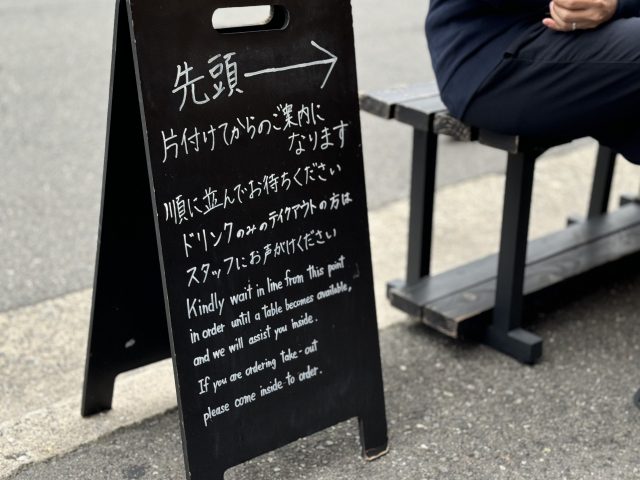 先頭→
片付けてからのご案内に
なります
順に並んでお待ちください
ドリンクのみのテイクアウトの方は
スタッフにお声がけください
Kindly wait in line from this point
in order until a table becomes available,
and we will assist you inside.
If you are ordering take-out
please come inside to order.